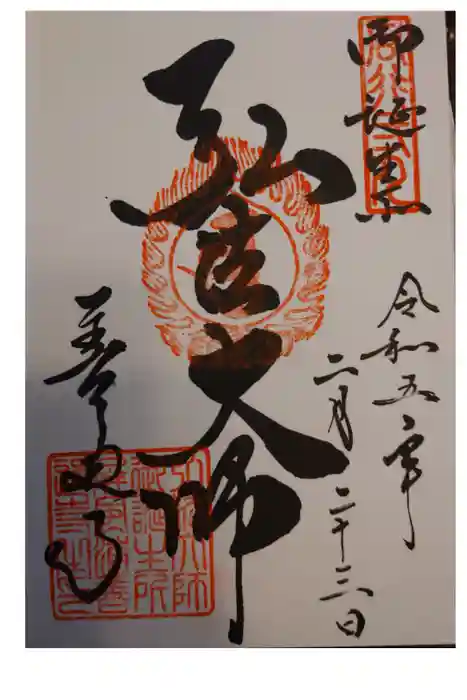 御誕生所
令和五年
二月二十三日
弘法大師
善通寺